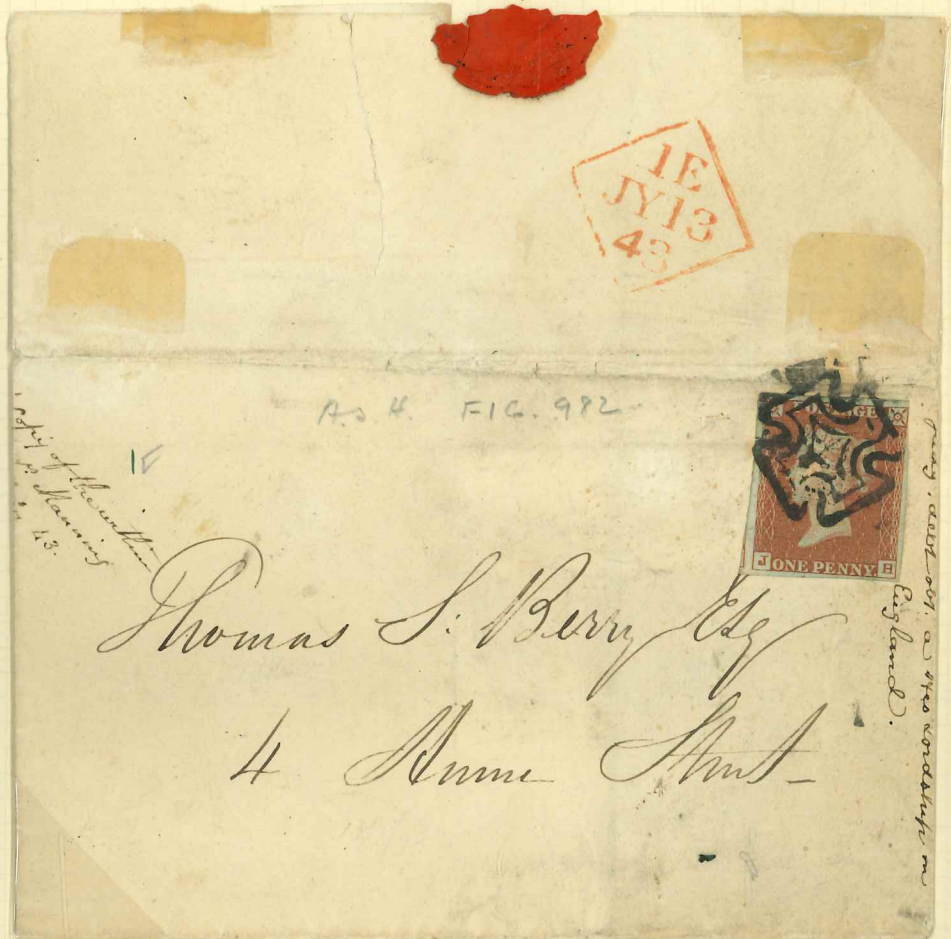 1E
JY13
43
A.S 4. FIG. 982
copy of the within
Manning
43.
POSTAGE
J ONE PENNY. H
Thomas S: Berry Esq
4 Hume Street
a His Lordship in
England.